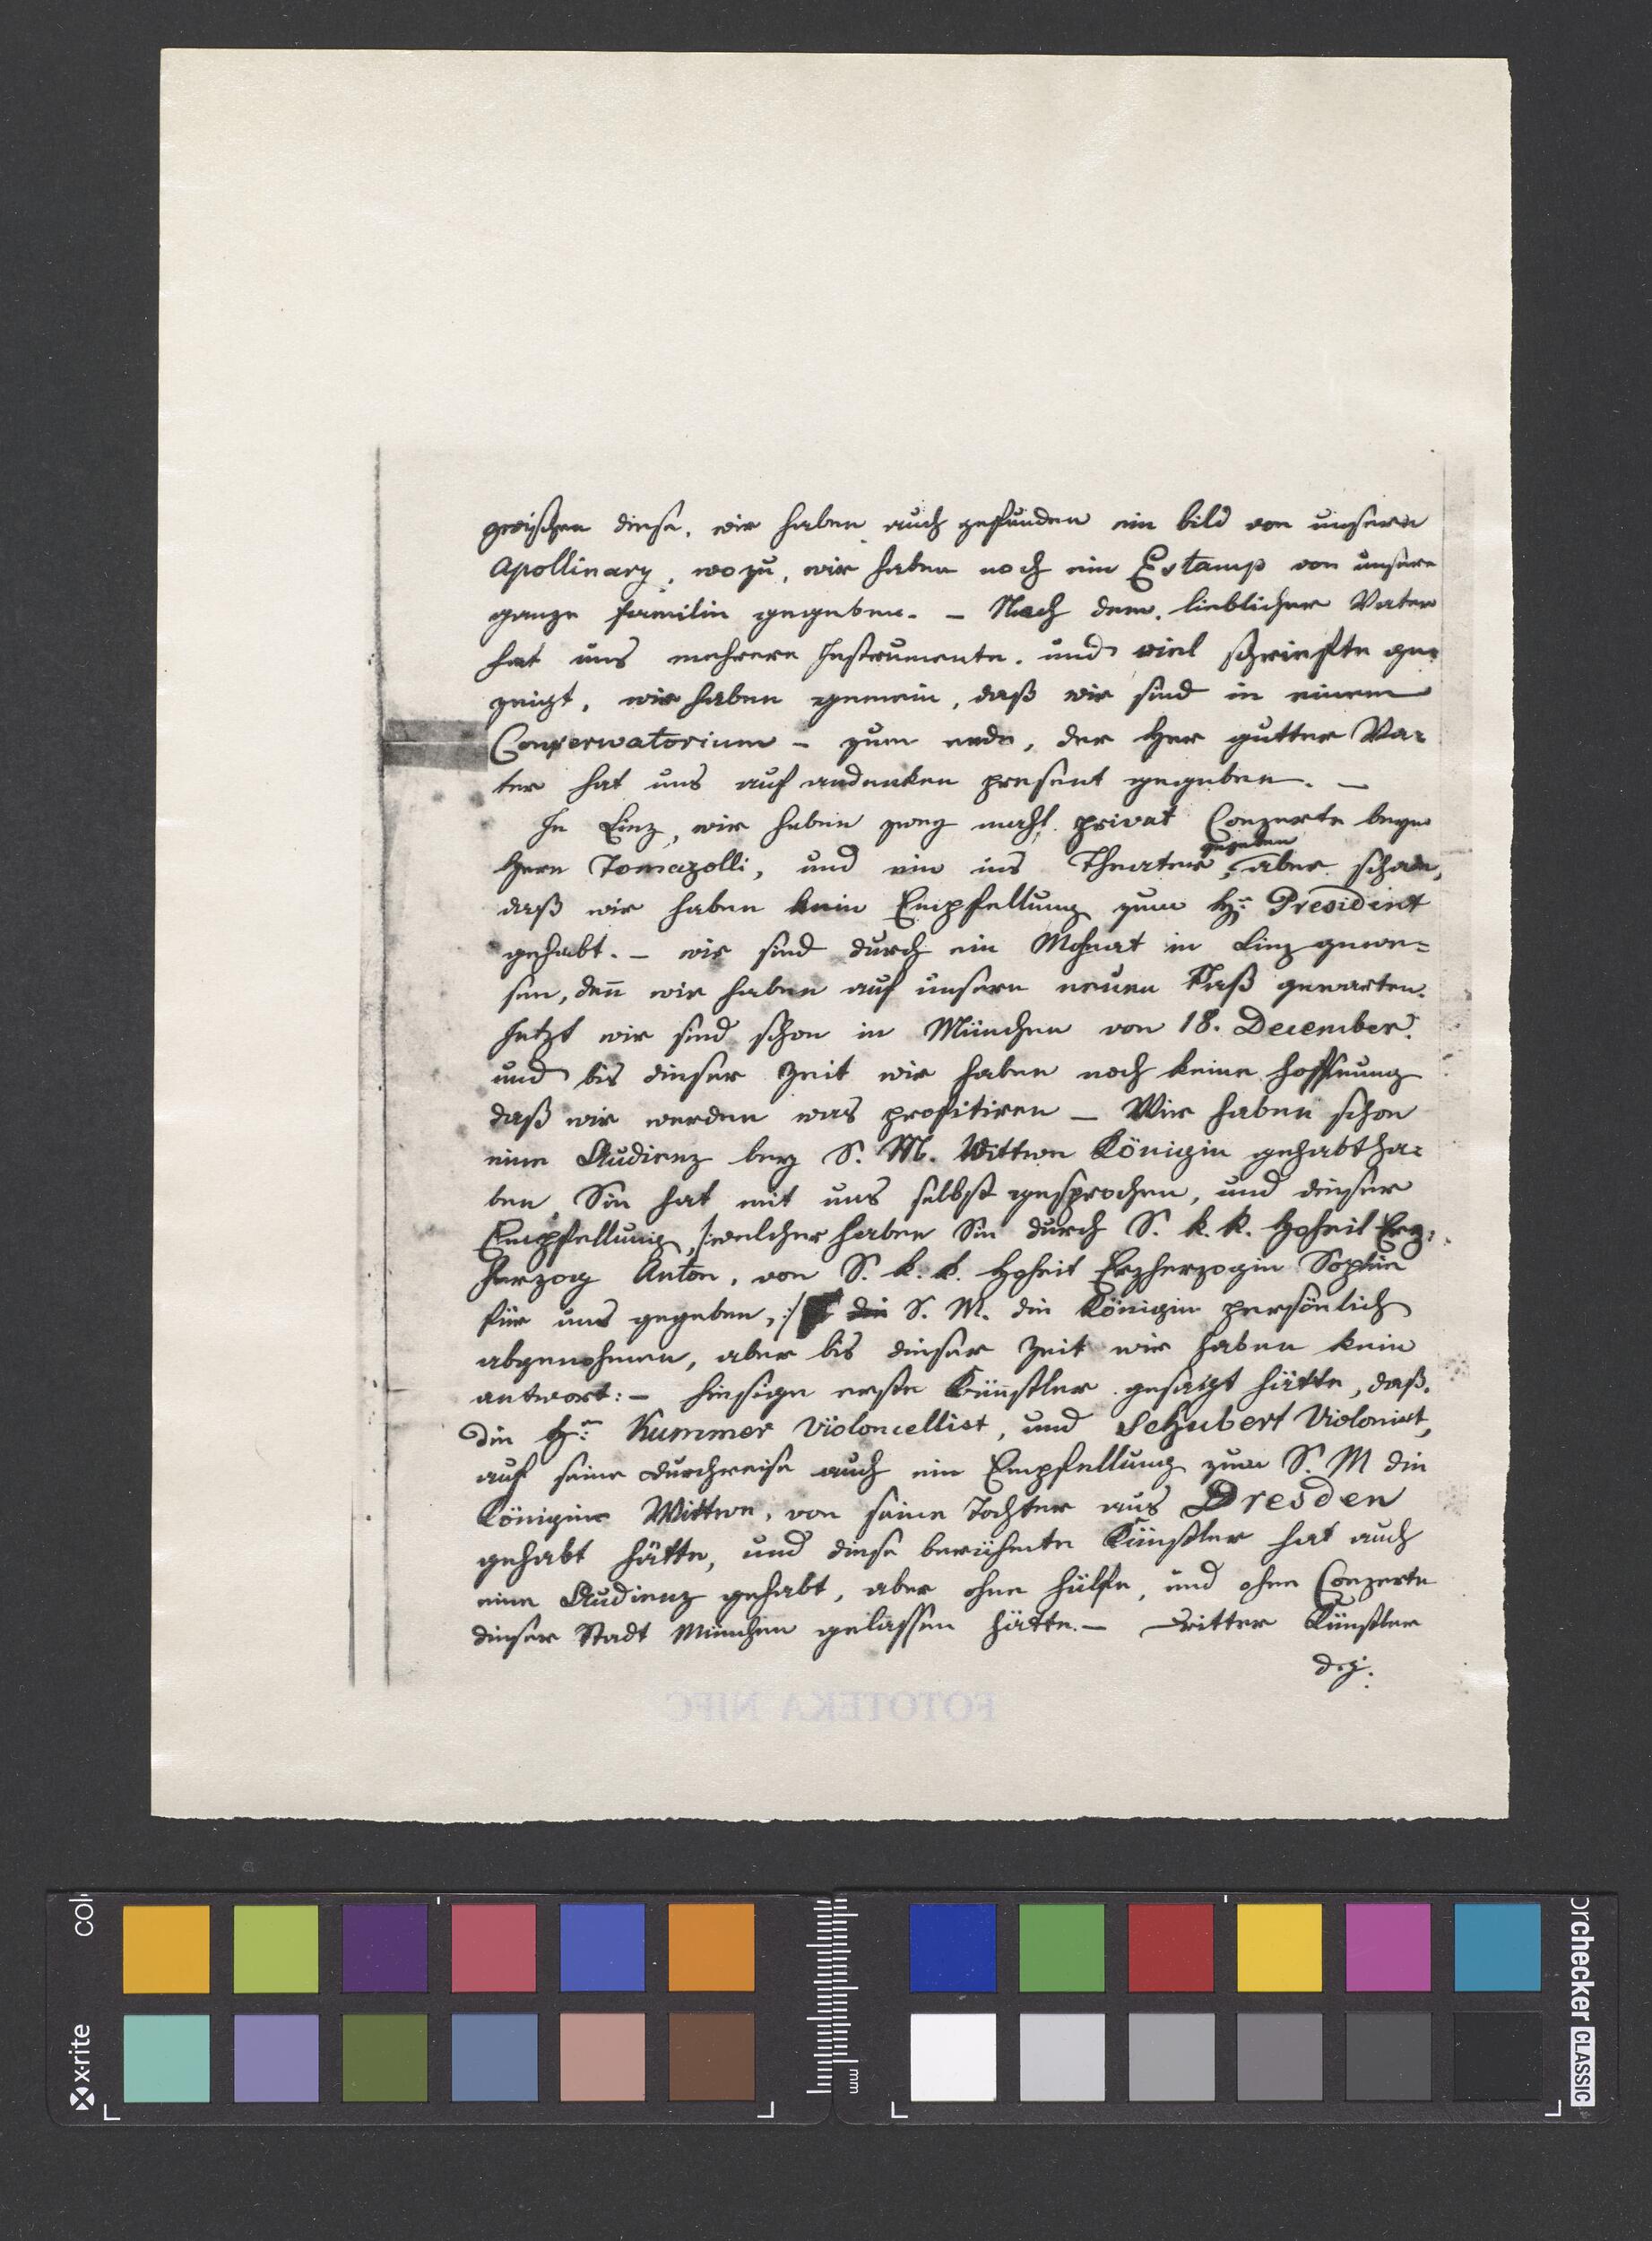 zwischen diese, wir haben auch gefunden ein bild von unsern
Apollinary, wozu, wir haben noch ein Estamp von unsere
ganze familie gegeben. – Nach dem, lieblicher Vater
hat uns mehrere Instrumente, und viel schriefte ge=
zeigt, wir haben gemein, daß wir sind in einem
Conserwatorium – zum ende, der Her gutter Va=
ter hat uns auf andenken present gegeben. –
In Linz, wir haben zwey mahl privat Conzerte beym
Hern Tomazolli, und ein ins Theater gegeben, aber schade,
daß wir haben kein Empfellung zum H: President
gehabt. – wir sind durch ein Mohnat in Linz gewe=
sen, denn wir haben auf unsern neuen Paß gewarten.
Jetzt wir sind schon in München von 18. December.
und bis dieser Zeit wir haben noch keine hoffnung
daß wir werden was profitiren – Wir haben schon
eine Audienz bey S. M. Wittwe Königin gehabt ha=
ben, Sie hat mit uns selbst gesprochen, und dieser
Empfellung, /:welcher haben Sie durch S. k. k. Hoheit Erz=
herzog Anton, von S. k. k. Hoheit Erzherzogin Sophie
für uns gegeben,:/ die S. M. die Königin persönlich
abgenohmen, aber bis dieser Zeit wir haben kein
antwort: – hiesige erste Künstler gesagt hätte, daß.
die H: Kummer Violoncellist, und Schubert Violonist,
auf seine durchreise auch ein Empfellung zum S. M die
Königine Wittwe, von seine Tochter aus Dresden
gehabt hätte, und diese berühmte Künstler hat auch
eine Audienz gehabt, aber ohne hülfe, und ohne Conzerte
dieser Stadt München gelassen hätte. – dritter Künstler
FOTOTEKA NIFC
x·rite
colorchecker CLASSIC
mm